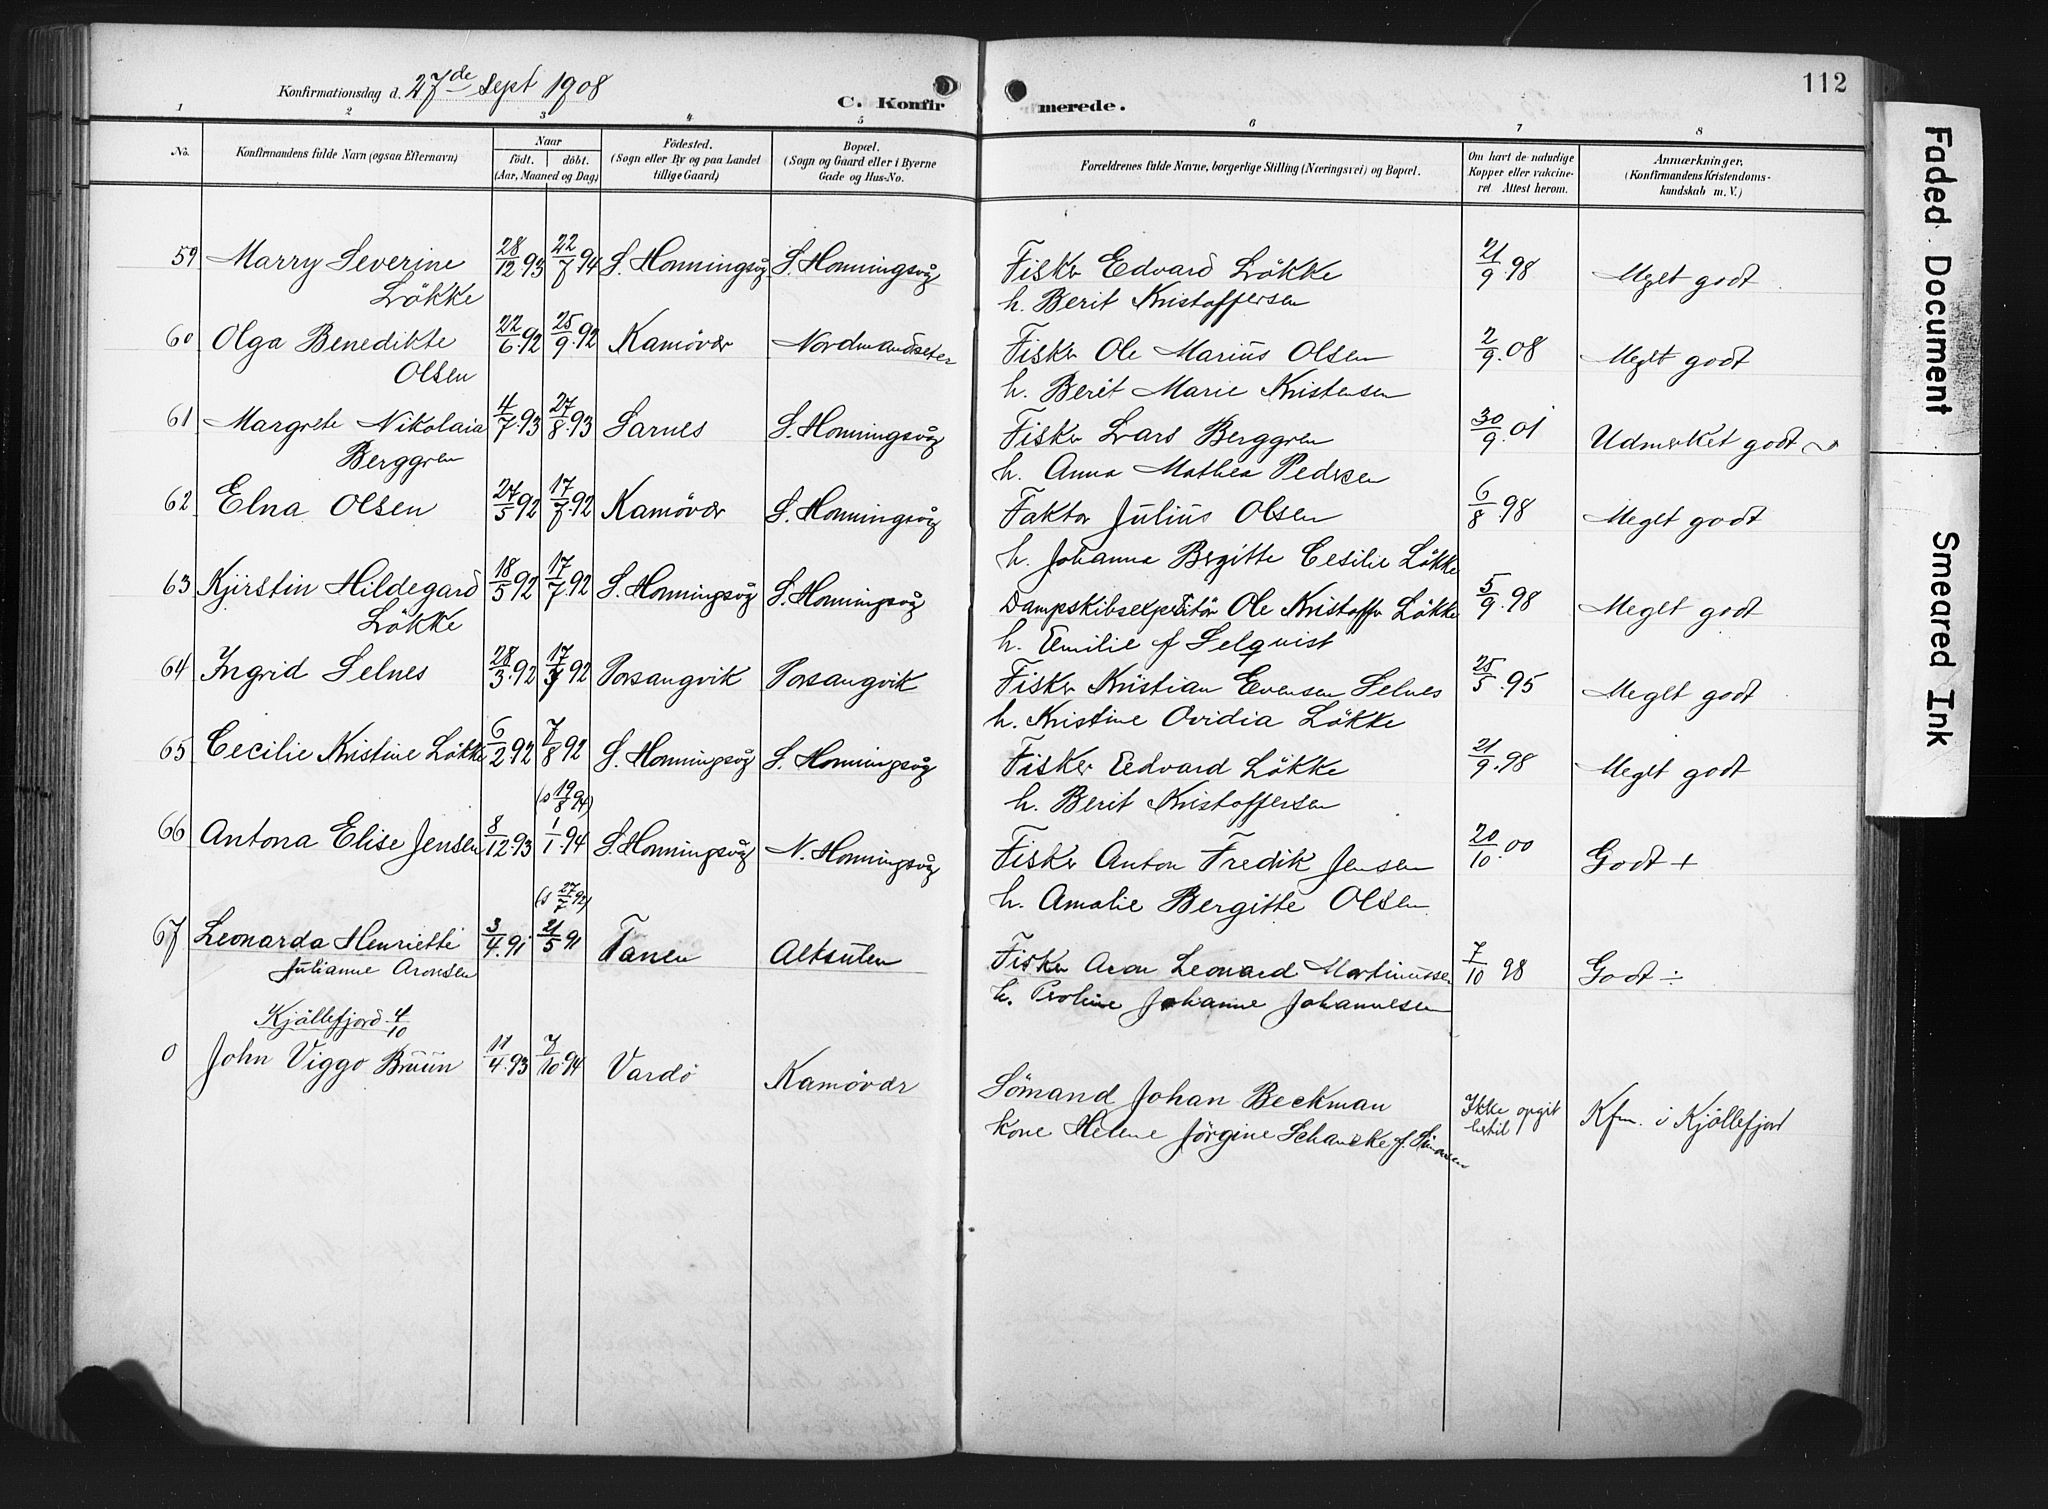 Konfirmationsdag d. 27de Sept 1908
C. Konfirmerede.
112
1 2 3 4 5 6 7 8
No.
Konfirmandens fulde Navn (ogsaa Efternavn)
Naar
født. døbt.
(Aar, Maaned og Dag)
Fødested.
(Sogn eller By og paa Landet
tillige Gaard)
Bopæl.
(Sogn og Gaard eller i Byerne
Gade og Hus-No.
Forældrenes fulde Navne, borgerlige Stilling (Næringsvei) og Bopæl.
Om havt de naturlige
Kopper eller vakcine-
ret Attest herom.
Anmærkninger.
(Konfirmandens Kristendoms-
kundskab m. V.)
59 Marry Severine 28/12 93 22/7 94 S. Honningsvåg S. Honningsvåg Fisker Edvard Løkke 21/9 98 Meget godt
Løkke h. Berit Kristoffersen
60 Olga Benedikte 22/6 92 25/9 92 Kamøvær Nordmandseter Fisker Ole Marius Olsen 2/9 08 Meget godt
Olsen h. Berit Marie Kristensen
61 Margrete Nikolaia 4/7 93 27/8 93 Sarnes S. Honningsvåg Fisker Lars Berggren 30/9 01 Udmerket godt
Berggren h. Anna Mathea Pedersen
62 Elna Olsen 27/5 92 17/7 92 Kamøvær S. Honningsvåg Faktor Julius Olsen 6/8 98 Meget godt
h. Johanna Birgitte Cesilie Løkke
63 Kjirstin Hildegard 18/5 92 17/7 92 S. Honningsvåg S. Honningsvåg Dampskibsexpeditør Ole Kristoffer Løkke 5/9 98 Meget godt
Løkke h. Emilie f Selquist
64 Ingrid Selnes 28/3 92 17/7 92 Porsangvik Porsangvik Fisker Kristian Evensen Selnes 25/5 95 Meget godt
h. Kristine Ovidia Løkke
65 Cecilie Kristine Løkke 6/2 92 7/8 92 S. Honningsvåg S. Honningsvåg Fisker Edvard Løkke 21/9 98 Meget godt
h. Berit Kristoffersen
(s 19/8 94)
66 Antona Elise Jensen 8/12 93 1/1 94 S. Honningsvåg N. Honningsvåg Fisker Anton Fredik Jensen 20/10 00 Godt +
h. Amalie Bergitte Olsen
67 Leonarda Henriette 3/4 91 21/5 91 Tanen Altsulen Fisker Aron Leonard Martinussen 7/10 98 Godt ÷
Julianne Aronsen h. Johanne Johannesen
Kjøllefjord 4/10
0 John Viggo Bruun 11/4 93 7/10 94 Vardø Kamøvær Sømand Johan Beckman Ikke opgit Kfm. i Kjøllefjord
hertil
kone Helene Jørgine Schancke f. Simonsen
Faded Document
Smeared Ink